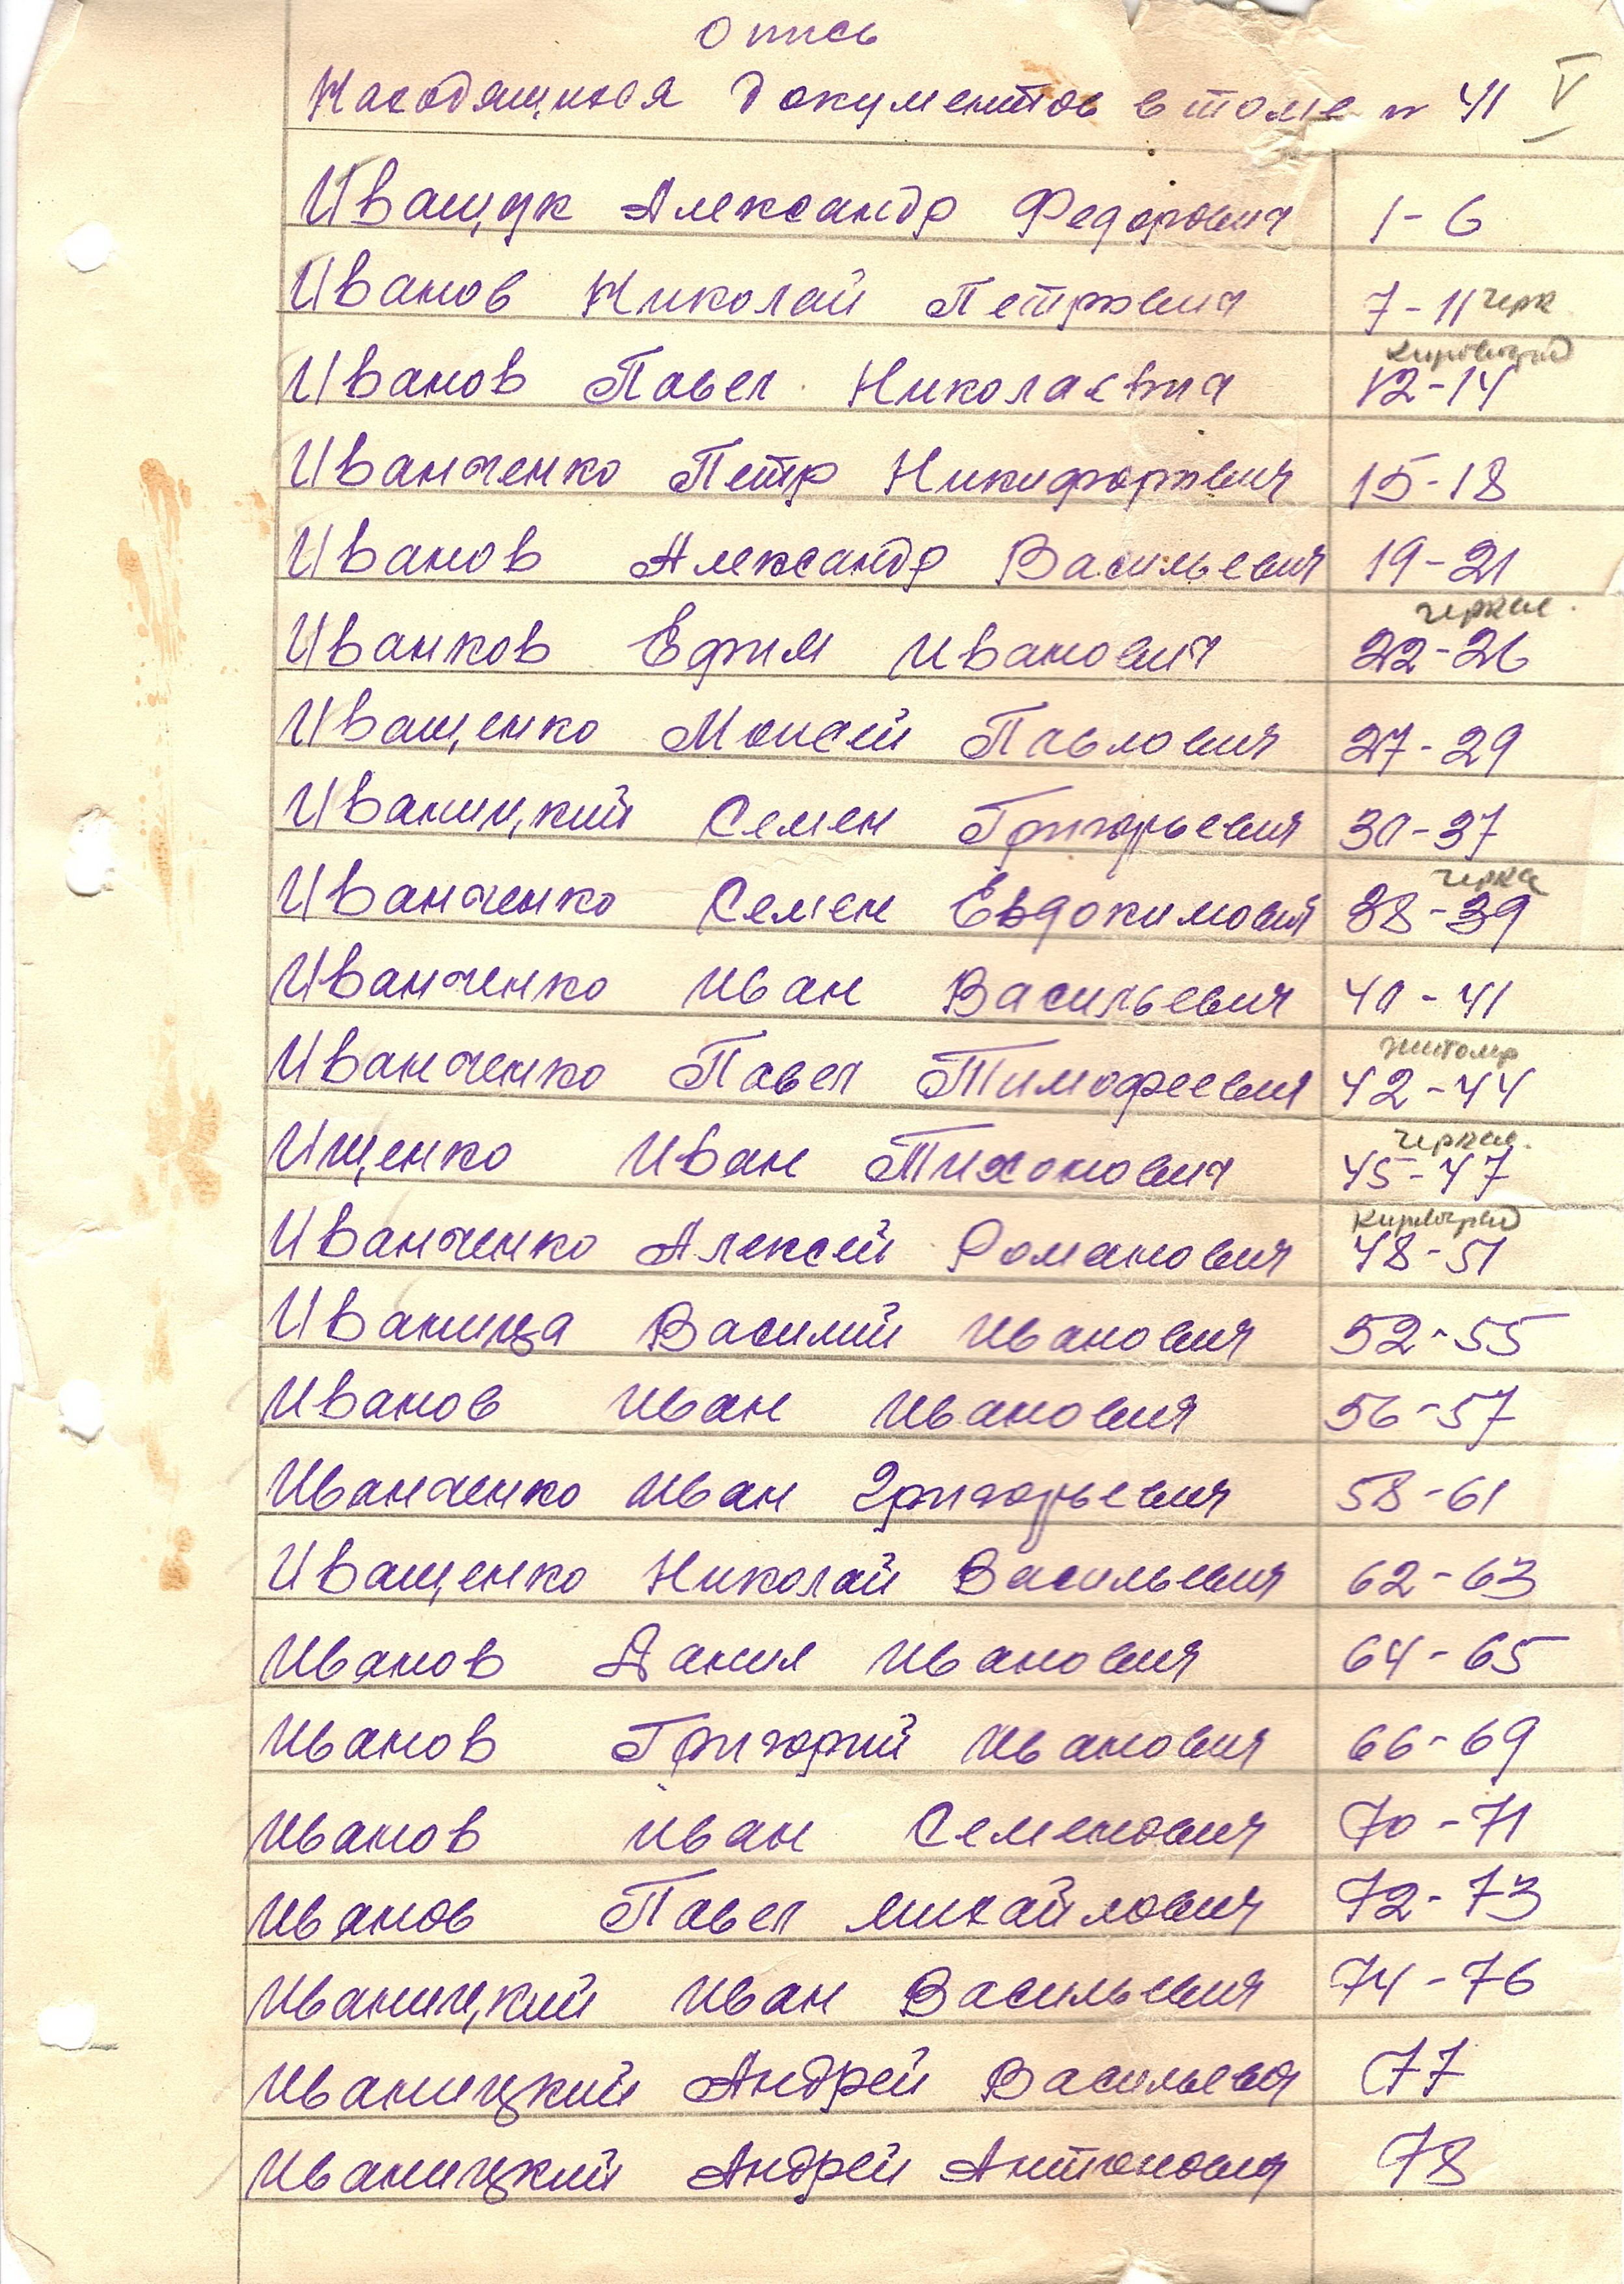 Опись
Находящихся документов в томе № 41 V
Иващук Александр Федорович 1-6
Иванов Николай Петрович 7-11 черк
Кировоград
Иванов Павел Николаевич 12-14
Иванченко Петр Никифорович 15-18
Иванов Александр Васильевич 19-21
черкас.
Иванков Ефим Иванович 22-26
Иващенко Моисей Павлович 27-29
Иваницкий Семен Григорьевич 30-37
черка
Иванченко Семен Евдокимович 38-39
Иванченко Иван Васильевич 40-41
житомр
Иванченко Павел Тимофеевич 42-44
черкас.
Ищенко Иван Тихонович 45-47
Кировоград
Иванченко Алексей Романович 48-51
Иваница Василий Иванович 52-55
Иванов Иван Иванович 56-57
Иванченко Иван Григорьевич 58-61
Иващенко Николай Васильевич 62-63
Иванов Данил Иванович 64-65
Иванов Григорий Иванович 66-69
Иванов Иван Семенович 70-71
Иванов Павел Михайлович 72-73
Иваницкий Иван Васильевич 74-76
Иваницкий Андрей Васильевич 77
Иваницкий Андрей Антонович 78